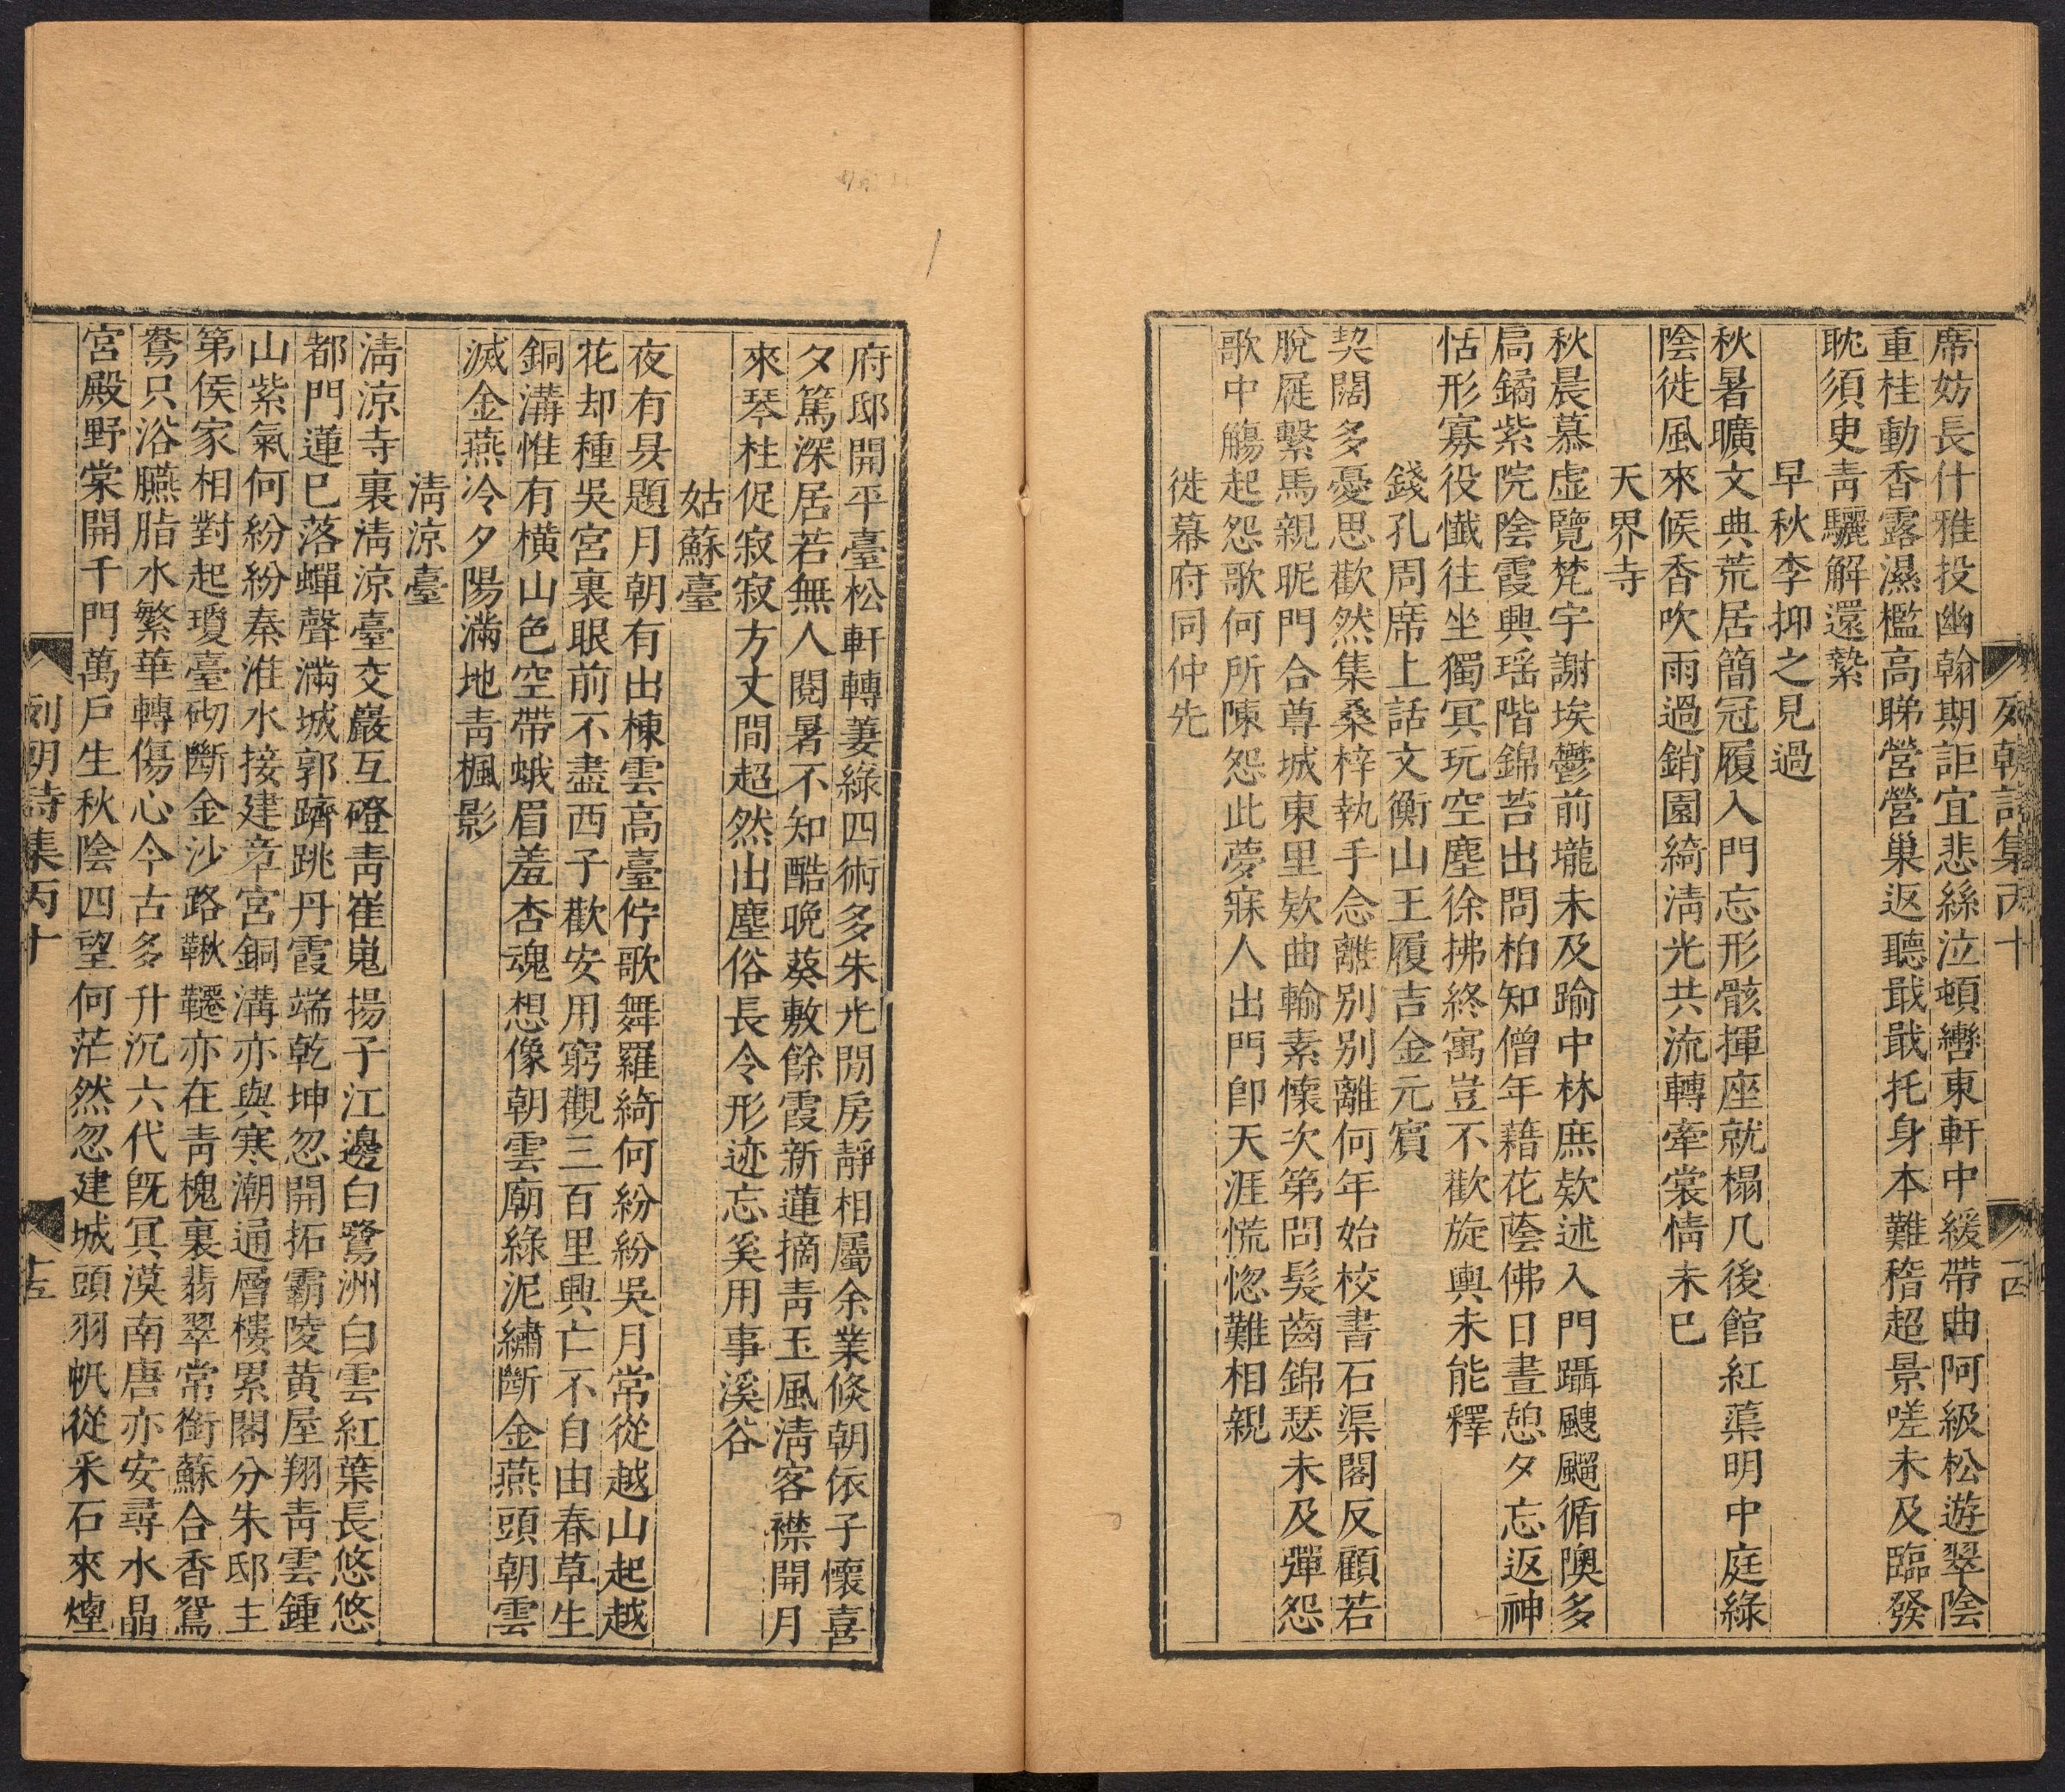 列朝詩集丙十
十四
席妨長什雅投幽翰期詎宜悲絲泣頓轡東軒中緩帶曲阿級松遊翠陰
重桂動香露濕檻高睇營營巢返聽戢戢托身本難稽超景嗟未及臨發
耽須吏靑驪解還縶
早秋李抑之見過
秋暑曠文典荒居簡冠履入門忘形骸揮座就榻几後館紅蕖明中庭綠
陰徙風來候香吹雨過銷園綺淸光共流轉牽裳情未已
天界寺
秋晨慕虛覽梵宇謝埃鬱前壠未及踰中林庶欵述入門躡颼飀循隩多
扃鐍紫院陰霞興瑶階錦苔出問柏知僧年藉花蔭佛日晝憩夕忘返神
怙形寡役懺往坐獨冥玩空塵徐拂終寓豈不歡旋輿未能釋
錢孔周席上話文衡山王履吉金元賓
契闊多憂思歡然集桑梓執手念離別別離何年始校書石渠閣反顧若
脫屣繫馬親昵門合尊城東里欵曲輸素懷次第問髮齒錦瑟未及彈怨
歌中觴起怨歌何所陳怨此夢寐人出門卽天涯慌惚難相親
徙幕府同仲先
府邸開平臺松軒轉萋綠四術多朱光閒房靜相屬余業倏朝依子懷喜
夕篤深居若無人閱暑不知酷晩葵敷餘霞新蓮摘靑玉風淸客襟開月
來琴柱促寂寂方丈間超然出塵俗長令形迹忘奚用事溪谷
姑蘇臺
夜有㫷題月朝有出棟雲高臺佇歌舞羅綺何紛紛吳月常從越山起越
花却種吳宮裏眼前不盡西子歡安用窮觀三百里興亡不自由春草生
銅溝惟有橫山色空帶蛾眉羞杏魂想像朝雲廟綠泥繡斷金燕頭朝雲
滅金燕冷夕陽滿地靑楓影
淸涼臺
淸涼寺裏淸涼臺交巖互磴靑崔嵬揚子江邊白鷺洲白雲紅葉長悠悠
都門蓮巳落蟬聲滿城郭躋跳丹霞端乾坤忽開拓霸陵黃屋翔靑雲鍾
山紫氣何紛紛秦淮水接建章宮銅溝亦與寒潮通層樓累閣分朱邸主
第侯家相對起瓊臺砌斷金沙路鞦韆亦在靑槐裏翡翠常銜蘇合香鴛
鴦只浴臙脂水繁華轉傷心今古多升沉六代旣冥漠南唐亦安尋水晶
宮殿野棠開千門萬戶生秋陰四望何茫然忽建城頭羽帆從釆石來煙
列朝詩集丙十
十五